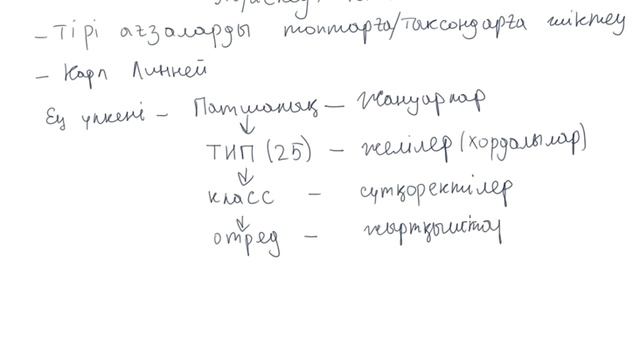 - Тірі ағзаларды топтарға/таксондарға жіктеу
- Карл Линней
Ең үлкені - Патшалық - Жануарлар
ТИП (25) - желілер (хордалылар)
класс - сүтқоректілер
отред - жыртқыштар